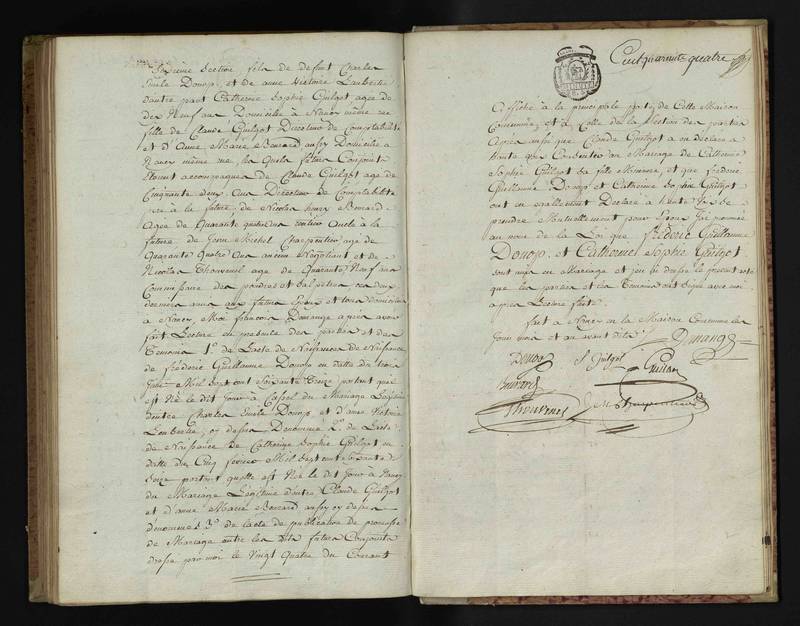 Septième Section fils de defunt Charles
Emile Donop et de anne Victoire Loubertie
dautre part Catherine Sophie Guilgot agée de
dix Neuf ans Domiciliée a Nancy même rue
fille de Claude Guilgot Directeur de Comptabilité
et d'Anne Marie Bouvard aussy Domiciliée a
Nancy même rue les quels futurs Conjoints
Etant accompagnés de Claude Guilgot agé de
Cinquante deux ans Directeur de Comptabilité
pere à la future de Nicolas henry Bouvard
Agée de Quarante quatre ans rentier oncle à la
future de Jean Michel Charpentier agé de
Quarante Quatre ans ancien Négotiant et de
Nicolas Thouvenel age de Quarante Neuf ans
Commissaire des poudres et Salpetres ces deux
derniers amis aux futurs Epoux et tous domiciliés
a Nancy Moi françois Domange après avoir
fait Lecture en presence des parties et des
Temoins 1.° de Lacte de Naissance
de frédéric Guillaume Donop en datte du trois
Juin Mil Sept cent Soixante Treize portant quil
est Né le dit Jour à Cassel du Mariage Legitime
dentre Charles Emile Donop et d'anne Victoire
Loubertie, cy dessus Denommés 2.° de Lacte
de Naissance de Catherine Sophie Guilgot en
datte du Cinq fevrier Mil Sept cent Soixante
Seize portant quelle est Née le dit Jour à Nancy
du Mariage Légitime dentre Claude Guilgot
et d'anne Marie Bouvard aussy cy dessus
dénommés 3.° de lacte de publication de promesse
de Mariage entre les dits futurs Conjoints
dressé par moi le Vingt Quatre du Courant
Cent quarante quatre
et affiché à la principale porte de Cette Maison
Commune, et à Celle de la Section des parties
Après aussi que Claude Guilgot a eu declaré a
haute voix Consentir au Mariage de Catherine
Sophie Guilgot sa fille Mineure, et que frédéric
Guillaume Donop et Catherine Sophie Guilgot
ont eu egallement Declaré à haute voix se
prendre Mutuellement pour Epoux J'ai prononcé
au nom de la Loi que Frédéric Guillaume
Donop, et Catherine Sophie Guilgot
sont unis en Mariage et j'en ai dressé le present acte
que les parties et les Temoins ont Signé avec moi
après Lecture faite.
fait à Nancy en la Maison Commune les
Jour mois et an avant dits
Domange
Donop S. Guilgot
Bouvard Guilgot
Thouvenel J M Charpentier